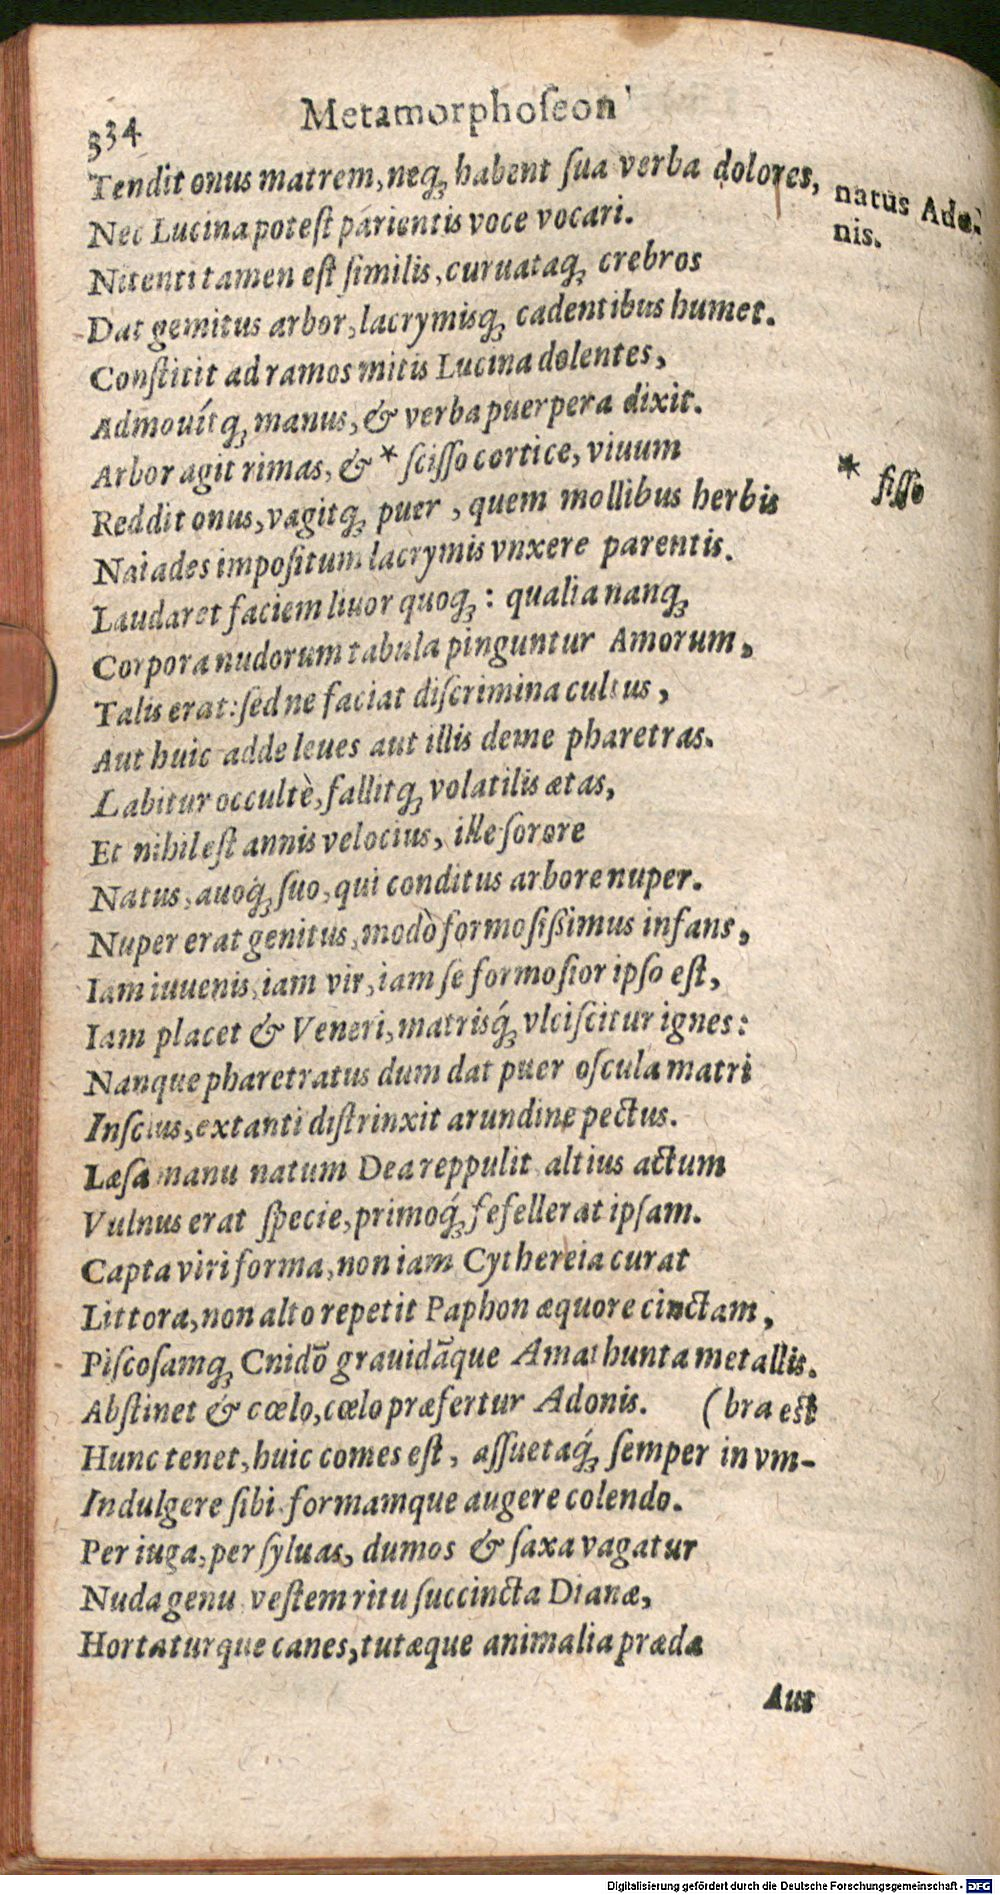 334
Metamorphoſeon
Tendit onus matrem, neq; habent ſua verba dolores,
natus Ado-
nis.
Nec Lucina poteſt parientis voce vocari.
Nitenti tamen eſt ſimilis, curuataq; crebros
Dat gemitus arbor, lacrymisq; cadentibus humet.
Conſtitit ad ramos mitis Lucina dolentes,
Admouítq; manus, & verba puerpera dixit.
Arbor agit rimas, & * ſciſſo cortice, viuum
* fiſſo
Reddit onus, vagitq; puer, quem mollibus herbis
Naiades impoſitum lacrymis vnxere parentis.
Laudaret faciem liuor quoq;: qualia nanq;
Corpora nudorum tabula pinguntur Amorum,
Talis erat: ſed ne faciat diſcrimina cultus,
Aut huic adde leues aut illis deme pharetras.
Labitur occultè, fallitq; volatilis ætas,
Et nihil eſt annis velocius, ille ſorore
Natus, auoq́; ſuo, qui conditus arbore nuper.
Nuper erat genitus, modò formoſiſſimus infans,
Iam iuuenis, iam vir, iam ſe formoſior ipſo eſt,
Iam placet & Veneri, matrisq́; vlciſcitur ignes:
Nanque pharetratus dum dat puer oſcula matri
Inſcius, extanti diſtrinxit arundine pectus.
Læſa manu natum Dea reppulit altius actum
Vulnus erat ſpecie, primoq́; fefellerat ipſam.
Capta viri forma, non iam Cythereia curat
Littora, non alto repetit Paphon æquore cinctam,
Piſcoſamq; Cnidō grauidāque Amathunta metallis.
Abſtinet & cœlo, cœlo præfertur Adonis. (bra eſt
Hunc tenet, huic comes eſt, aſſuetaq́; ſemper in vm-
Indulgere ſibi formamque augere colendo.
Per iuga, per ſyluas, dumos & ſaxa vagatur
Nuda genu veſtem ritu ſuccincta Dianæ,
Hortaturque canes, tutæque animalia præda
Aut
Digitalisierung gefördert durch die Deutsche Forschungsgemeinschaft - DFG